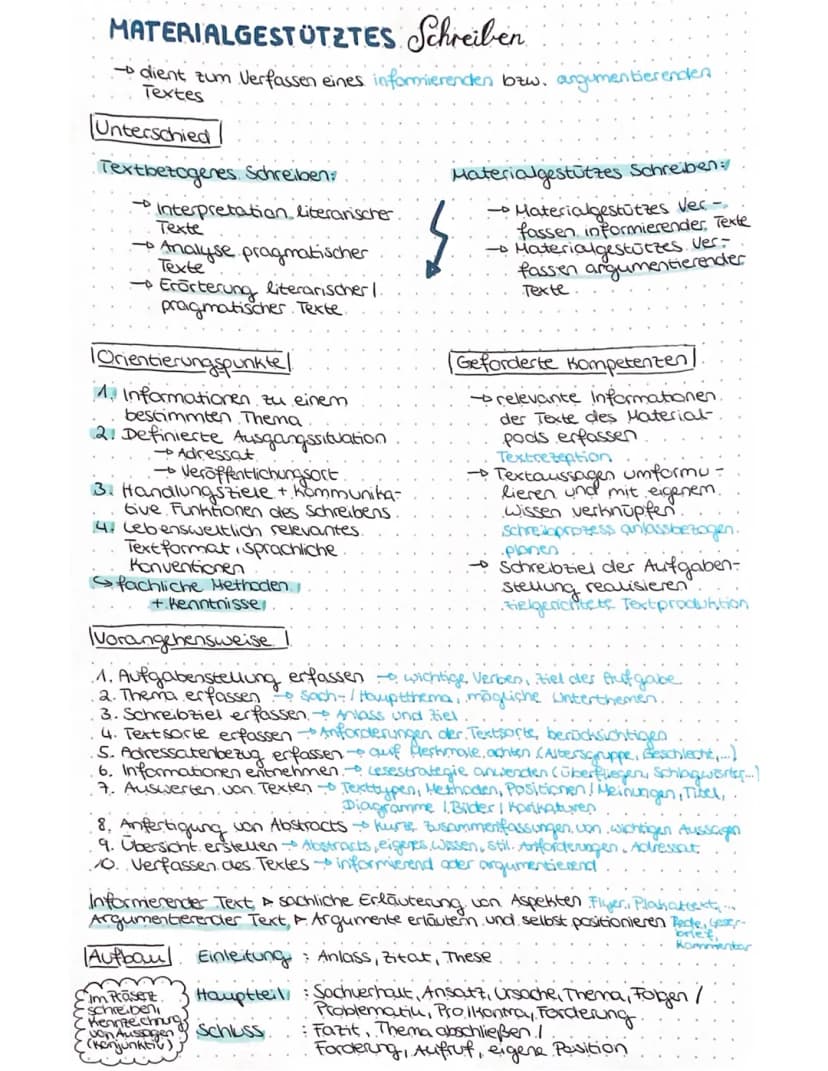 MATERIALGESTÜTZTES Schreiben
→ dient zum Verfassen eines informierenden bzw. argumentierenden
Textes
Unterschied
Textbezogenes Schreiben:
→ Interpretation literarischer
Texte
→ Analyse pragmatischer
Texte
→ Erörterung literarischer/
pragmatischer Texte
Materialgestütztes Schreiben:
→ Materialgestütztes Ver-
fassen informierender Texte
→ Materialgestütztes Ver-
fassen argumentierender
Texte
Orientierungspunkte
1. Informationen zu einem
bestimmten Thema
2. Definierte Ausgangssituation
→ Adressat
→ Veröffentlichungsort
3. Handlungsziele + kommunika-
tive Funktionen des Schreibens
4. Lebensweltlich relevantes
Textformat, sprachliche
Konventionen
↪ fachliche Methoden
+ Kenntnisse
Geforderte Kompetenzen
→ relevante Informationen
der Texte des Material-
pools erfassen
Textrezeption
→ Textaussagen umformu-
lieren und mit eigenem
Wissen verknüpfen
Schreibprozess anlassbezogen
planen
→ Schreibziel der Aufgaben-
stellung realisieren
zielgerichtete Textproduktion
Vorangehensweise
1. Aufgabenstellung erfassen → wichtige Verben, Ziel des Aufgabe
2. Thema erfassen → Sach-/Hauptthema, mögliche Unterthemen
3. Schreibziel erfassen → Anlass und Ziel
4. Textsorte erfassen → Anforderungen der Textsorte berücksichtigen
5. Adressatenbezug erfassen → auf Merkmale achten (Altersgruppe, Geschlecht,...)
6. Informationen entnehmen → Lesestrategie anwenden (überfliegen, Schlagwörter,...)
7. Auswerten von Texten → Texttypen, Methoden, Positionen/Meinungen, Titel,
Diagramme/Bilder/Karikaturen
8. Anfertigung von Abstracts → kurze Zusammenfassungen von wichtigen Aussagen
9. Übersicht erstellen → Abstracts, eigenes Wissen, stil. Anforderungen, Adressat
10. Verfassen des Textes → informierend oder argumentierend
Informierender Text ▷ sachliche Erläuterung von Aspekten Flyer, Plakattext,...
Argumentierender Text ▷ Argumente erläutern und selbst positionieren Rede, Leser-
brief,
Kommentar
Aufbau
Einleitung : Anlass, Zitat, These
Hauptteil : Sachverhalt, Ansatz, Ursache, Thema, Folgen/
Problematik, Pro/Kontra, Forderung
Schluss : Fazit, Thema abschließen/
Forderung, Aufruf, eigene Position
im Präsenz
schreiben,
Kennzeichnung
von Aussagen
(Konjunktiv)